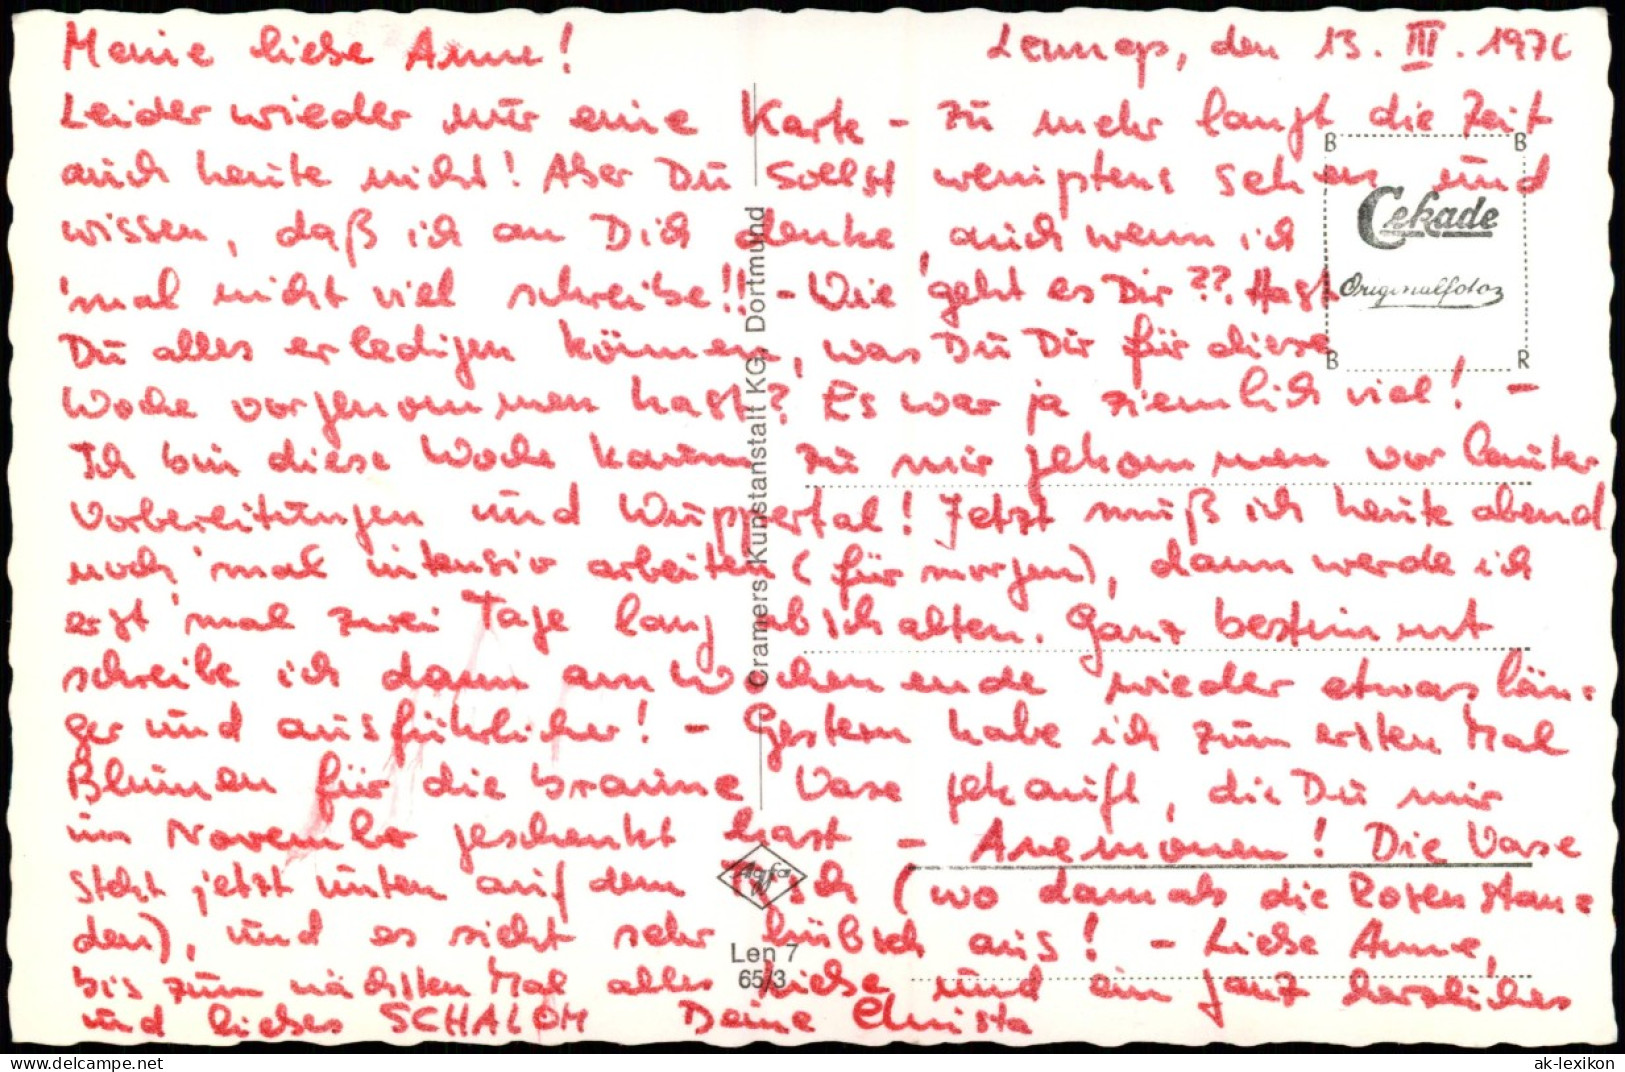 Meine liebe Anne!
Lennep, den 13. III. 1970
Leider wieder nur eine Karte - zu mehr langt die Zeit
auch heute nicht! Aber Du sollst wenigstens sehen und
wissen, daß ich an Dich denke, auch wenn ich
'mal nicht viel schreibe!! - Wie geht es Dir??. Hast
Du alles erledigen können, was Du Dir für diese
Woche vorgenommen hast? Es war ja ziemlich viel! -
Ich bin diese Woche kaum zu mir gekommen vor lauter
Vorbereitungen und Wuppertal! Jetzt muß ich heute abend
noch 'mal intensiv arbeiten (für morgen), dann werde ich
erst 'mal zwei Tage lang abschalten. Ganz bestimmt
schreibe ich dann am Wochenende wieder etwas län-
ger und ausführlicher! - Gestern habe ich zum ersten Mal
Blumen für die braune Vase gekauft, die Du mir
im November geschenkt hast - Anemonen! Die Vase
steht jetzt unten auf dem Tisch (wo damals die Rosen stan-
den), und es sieht sehr hübsch aus! - Liebe Anne,
bis zum nächsten Mal alles Liebe und ein ganz herzliches
und liebes SCHALOM Deine Christa
B B
Cekade
Originalfotos
B R
Cramers Kunstanstalt KG, Dortmund
Agfa
Len 7
65/3
ak-lexikon